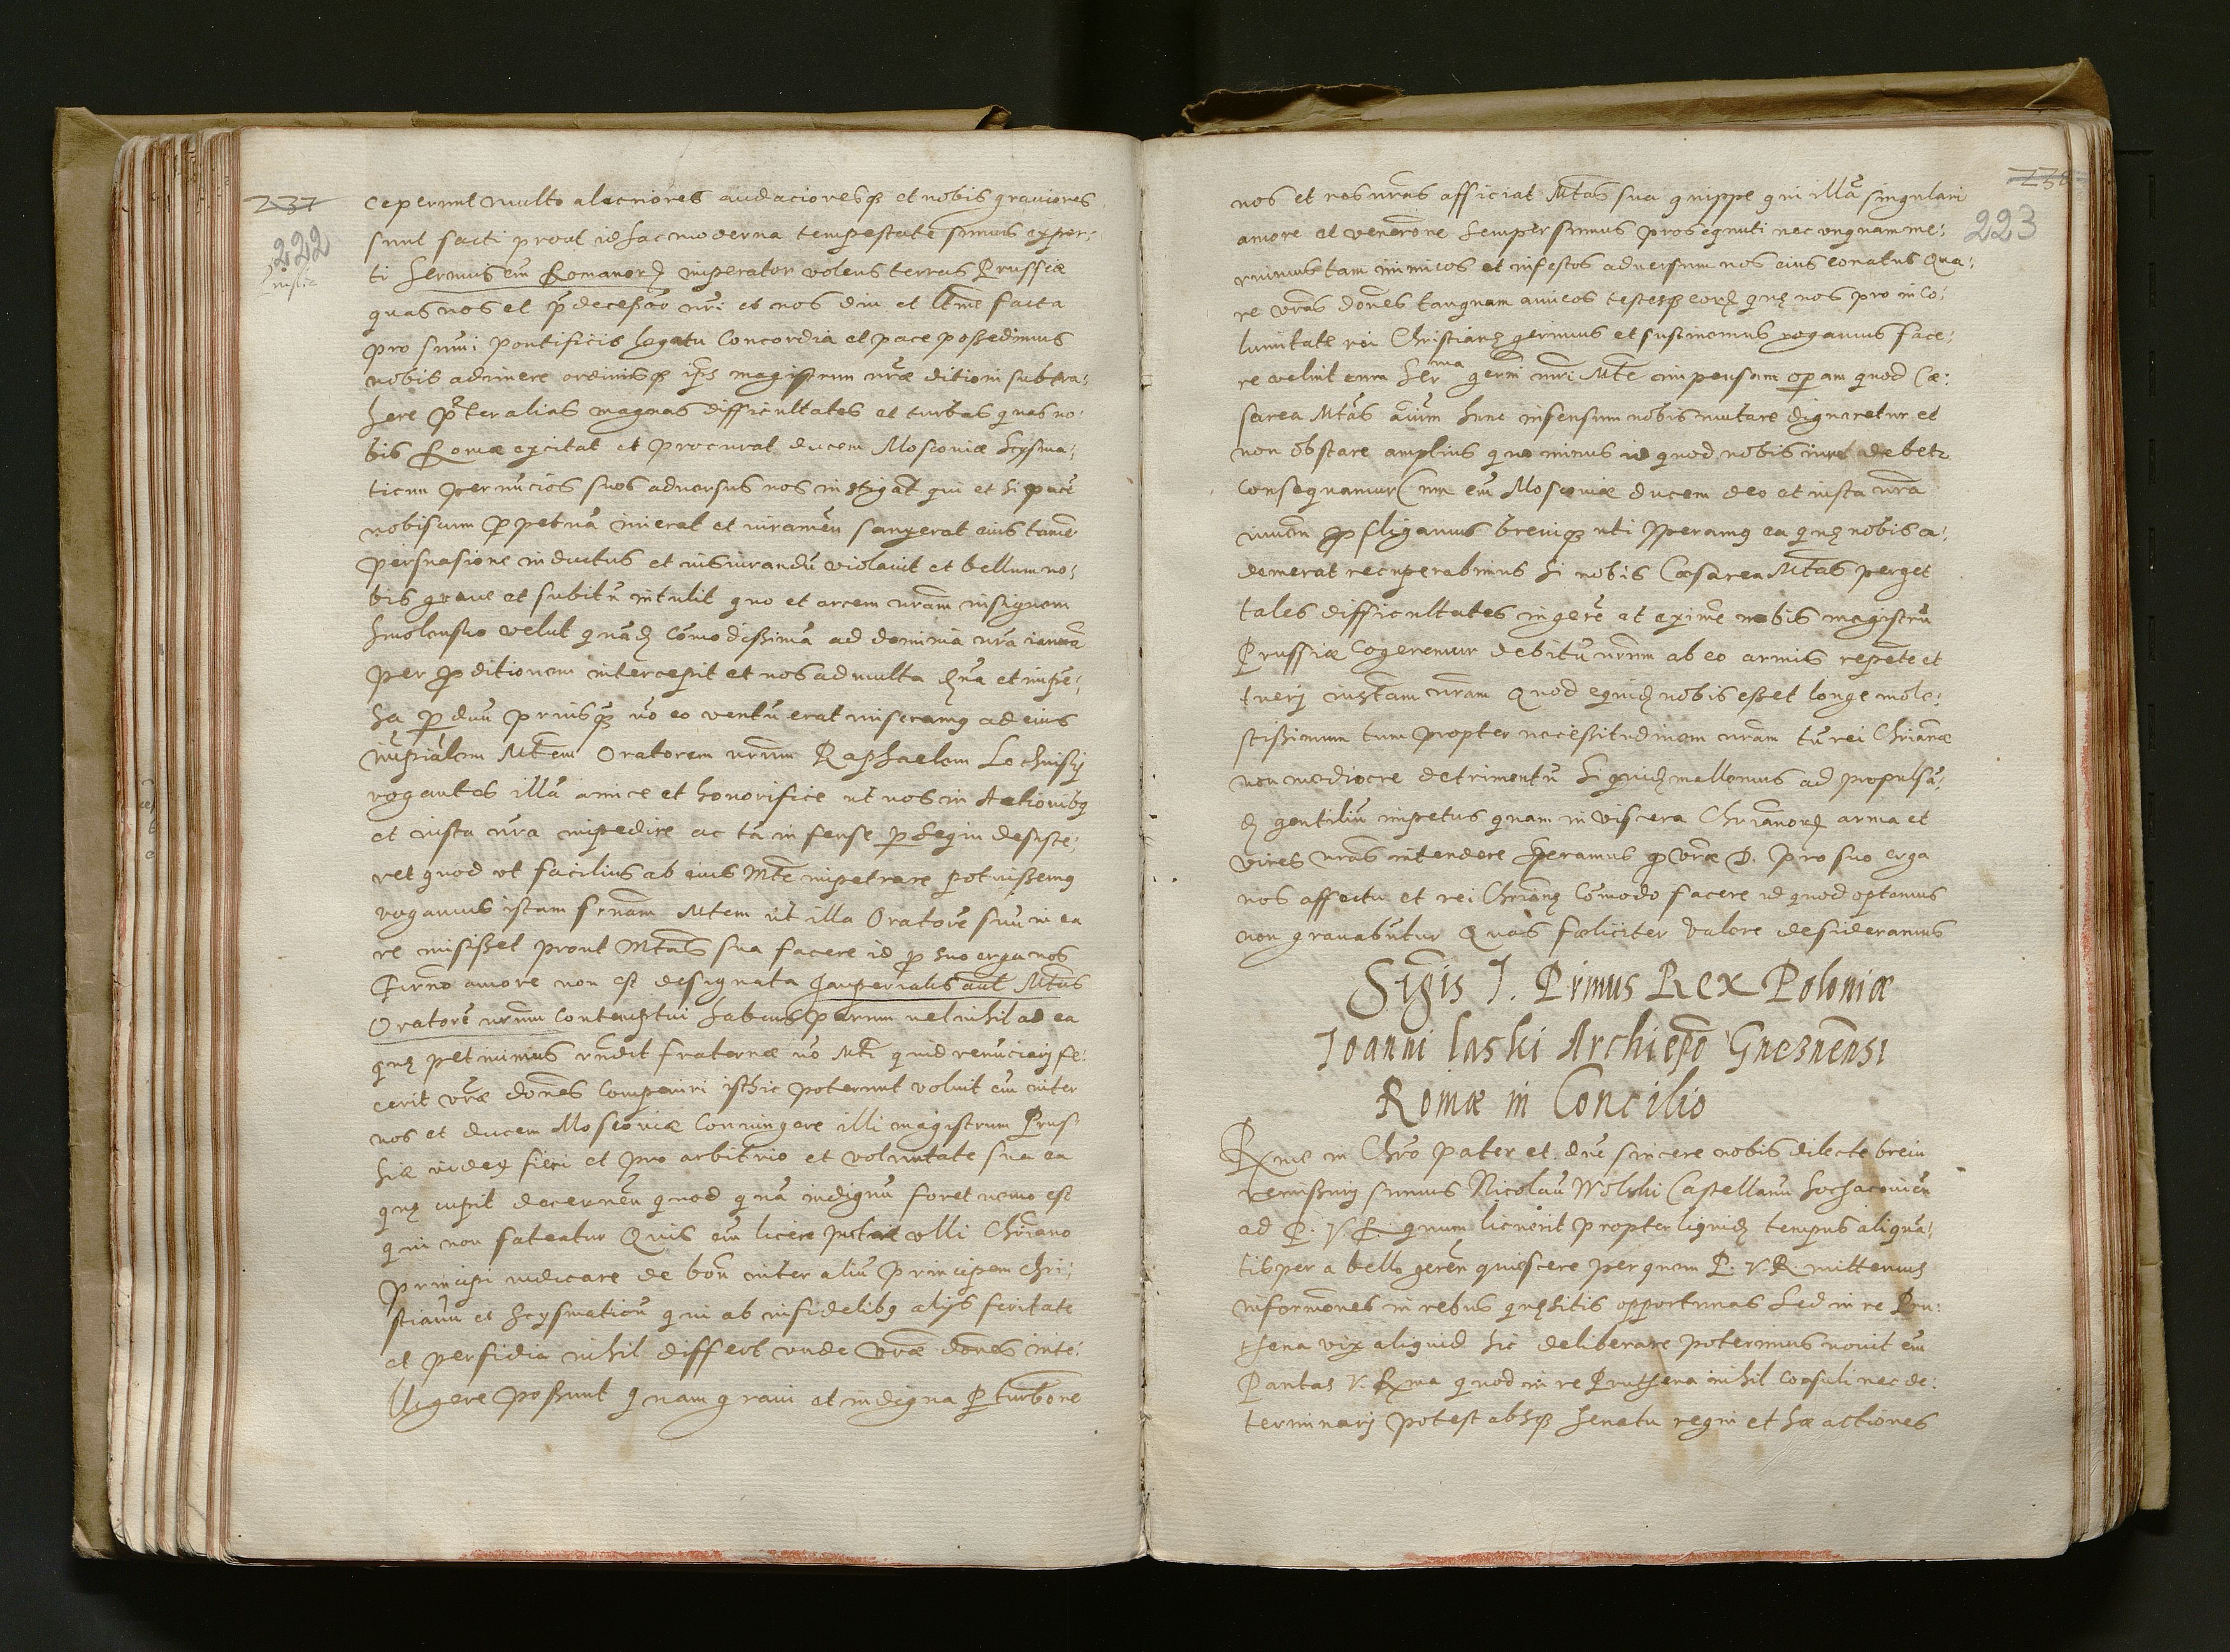 237
222
Prussia
ceperunt multo alacriores audacioresq3 et nobis graviores
sunt facti prout id hac moderna tempestate sumus exper-
ti Sermus em Romanor3 imperator volens terras Prussiæ
quas nos et p̃decessor nr̃i et nos diu et ltme facta
pro summi pontificis legatu Concordia et pace possedimus
nobis adimere ordinisq3 ip̃s magistrum nr̃æ ditioni subtra-
here p̃ter alias magnas difficultates et turbas quas no-
bis Romæ excitat et procurat ducem Moscoviæ scysma-
ticum per nũcios suos adversus nos instigat̃ qui etsi pacẽ
nobiscum p̱petuã inierat et iuramẽn sanxerat eius tamẽ
persuasione inductus et iusiurandũ violavit et bellum no-
bis grave et subitũ intulit quo et arcem nr̃am insignem
Smolensko velut quãd3 cõmodissimã ad dominia nr̃a ianuã
per p̱ditionem intercepit et nos ad multa d̃na et impẽ-
sa p̱duxit priusq3 vo eo ventũ erat miseramq ad eius
imp̃ialem Mtem Oratorem nr̃um Raphaelem Lechnisky
rogantes illã amice et honorifice ut nos in Actionibq
et iusta nr̃a impedire ac tã infense p̱sequi desiste-
ret quod ut facilius ab eius Mtẽ impetrare potuissemq
rogavimus istam frñam Mtem ut illa Oratorẽ suũ in ea
re misisset prout Mtas sua facere id p̱ suo erga nos
fr̃no amore non est designata Imperialis aut̃ Mtas
Oratorẽ nr̃um contemptui habens parum vel nihil ad ea
quę petivimus rñdit fraternæ vo Mti quid renũciarj fe-
cerit vr̃æ dones comperiri isthic poterunt voluit em inter
nos et ducem Moscoviæ coniungere illi magistrum Prus-
siæ fieri et pro arbitrio et voluntate sua ea
quę cupit decernẽn quod quã indignũ foret nemo est
qui non fateatur Quis em licere putaret ulli Chriano
principi iudicare de bon̄ inter aliũ principem chri-
stianũ et Scysmaticũ qui ab infidelibq alijs feritate
et perfidia nihil differt unde Vr̃æ dones inte-
lligere possunt quam gravi et indigna p̱turbone
238
223
nos et res nr̃as afficiat Mtas sua quippe qui illã singulari
amore et venerõne semper sumus prosequuti nec unquam me-
ruimus tam inimicos et infestos adversum nos eius conatus Qua-
re vr̃as dones tanquam amicos testesq3 eor3 quę nos pro inco-
lumitate rei Christianę gerimus et sustinemus rogamus face-
re velint cum Serma germ̃ nr̃i Mte impensam op̱am quod Cæ-
sarea Mtas aĩum hunc infensum nobis mutare dignaretur et
non obstare amplius quo minus id quod nobis iure debetr
consequamur Cum em Moscoviæ ducem deo et iusta nr̃a
iuven̄ p̱fligamus breviq3 uti speramq ea quę nobis a-
demerat recuperabimus si nobis Cæsarea Mtas perget
tales difficultates ingerẽ et eximẽ nobis magistrũ
Prussiæ Cogeremur debitũ nr̃um ab eo armis repetẽ et
tuerj iustam nr̃am Quod equid3 nobis esset longe mole-
stissimum tum propter necessitudinem nr̃am tũ rei Chrianæ
non mediocre detrimentũ siquid3 mallemus ad propulsã-
d3 gentiliũ impetus quam in viscera Chrianor3 arma et
vires nr̃as intendere speramus q3 vr̃æ D. pro suo erga
nos affectu et rei Chrianę cõmodo facere id quod optamus
non gravabuntur Quas fœliciter valere desideramus
Sigis J. Primus Rex Poloniæ
Joanni Laski Archiepo Gneznensi
Romæ in Concilio
Rxme in Chro pater et dne sincere nobis dilecte brevi
remissurj sumus Nicolaũ Wolski Castellanũ Sochacovien
ad P. V. R. quum licuerit propter liquid3 tempus aliquã-
tisper a bello gerẽn quiescere per quem P. V. R. mittemus
informõnes in rebus quęsitis opportunas Sed in re Pru-
thena vix aliquid hic deliberare poterimus novit em
Pantas V. Rxma quod in re Pruthena nihil consuli nec de-
terminarj potest absq3 Senatu regni et hæ actiones